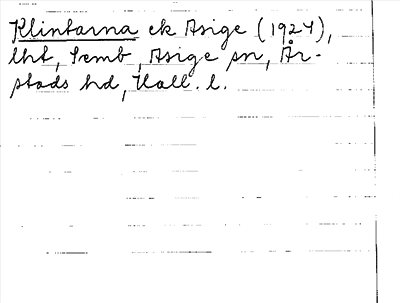 Klintarna ek Asige (1924),
lht, Semb, Asige sn, År-
stads hd, Hall. l.